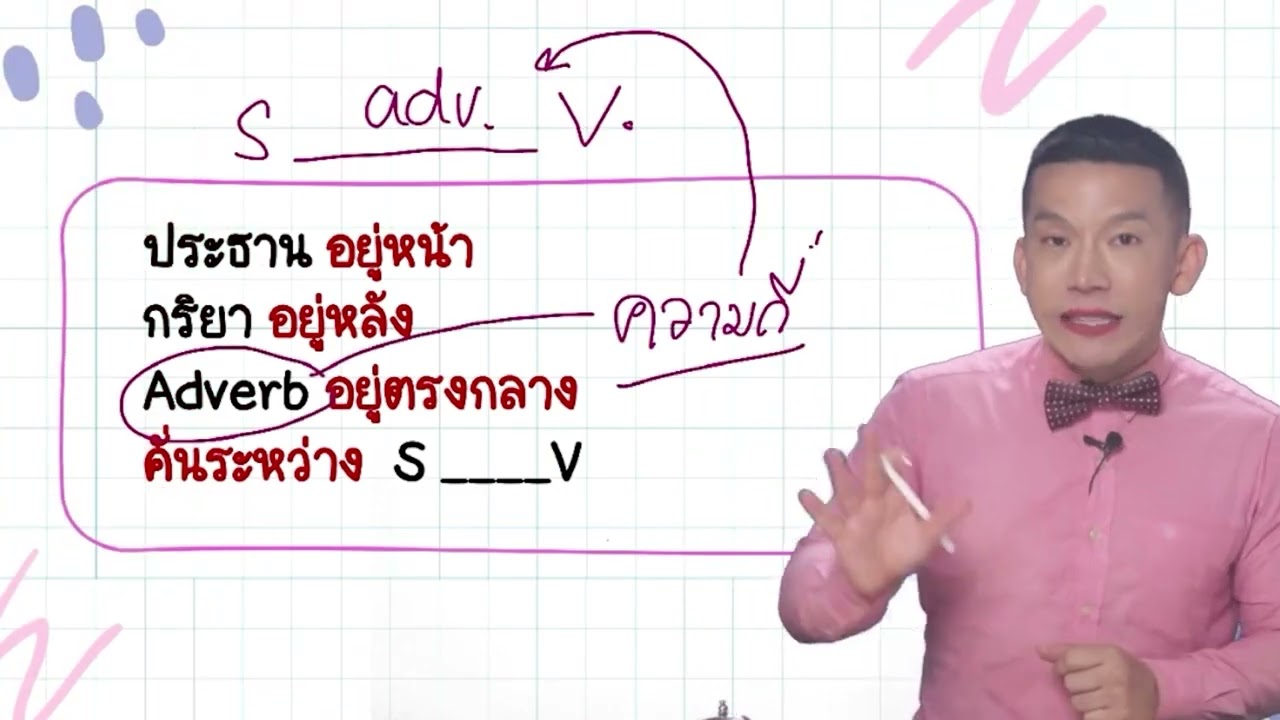 S adv. V.
ประธาน อยู่หน้า
กริยา อยู่หลัง
ความถี่
Adverb อยู่ตรงกลาง
คั่นระหว่าง S ____V